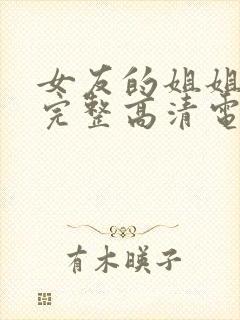 女友的姐姐
完整高清電
有木暎子